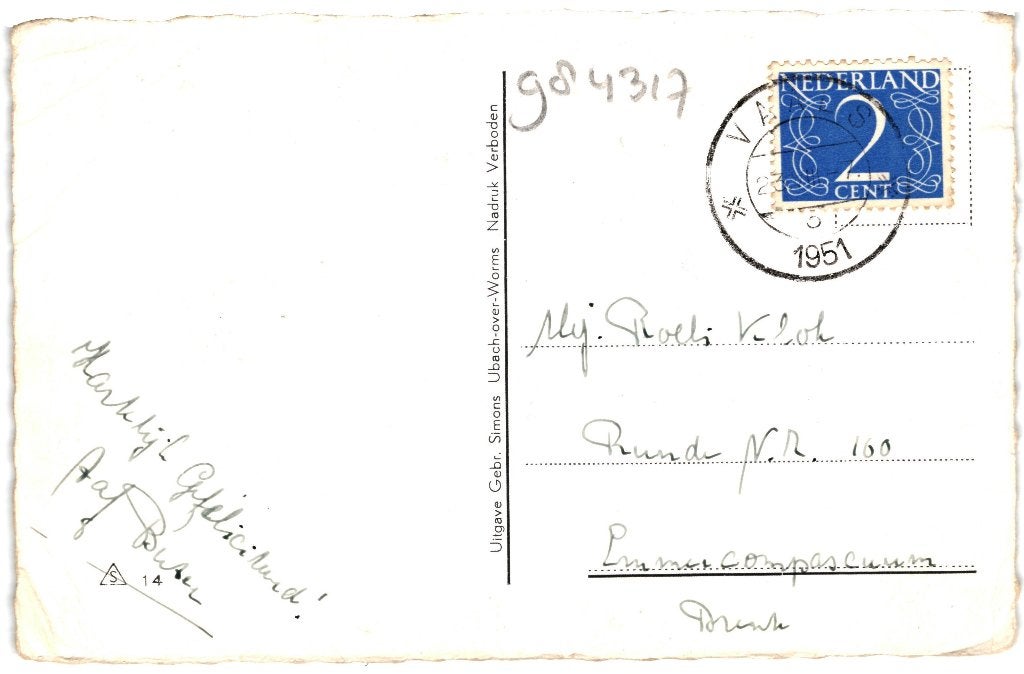 984317
NEDERLAND
2
CENT
1951
Uitgave Gebr. Simons Ubach-over-Worms Nadruk Verboden
Mej. Roelie Vlok
Runde N.Z. 100
Emmercompascuum
Drenthe
Hartelijk Gefeliciteerd!
S 14